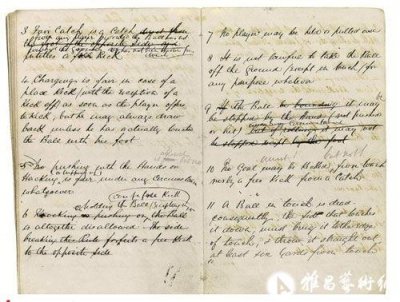 3 Fair Catch is a Catch direct from
entitles a free Kick
4 Charging is fair in case of a
place Kick (with the exception of a
Kick off as soon as the player offers
to Kick, but he may always draw
back unless he has actually touched
the Ball with his foot.
5 No pushing with the Hands or
Hacking is fair under any circumstances
whatsoever
holding the Ball
6 Knocking or pushing on the Ball
is altogether disallowed. The side
breaking this Rule forfeits a free Kick
to the opposite side.
7 No player may be held or pulled over
8 It is not lawful to take the Ball
off the ground (except in touch) for
any purpose whatever
9 If the Ball be bounding it may
be stopped by the Hand, not pushed
or hit,
10 No Goal may be Kicked from touch
nor by a free Kick from a Catch
11 A Ball in touch is dead,
consequently the side that touches
it down, must bring it to the edge
of touch, & throw it straight out
at least six yards from touch
雅昌艺术网